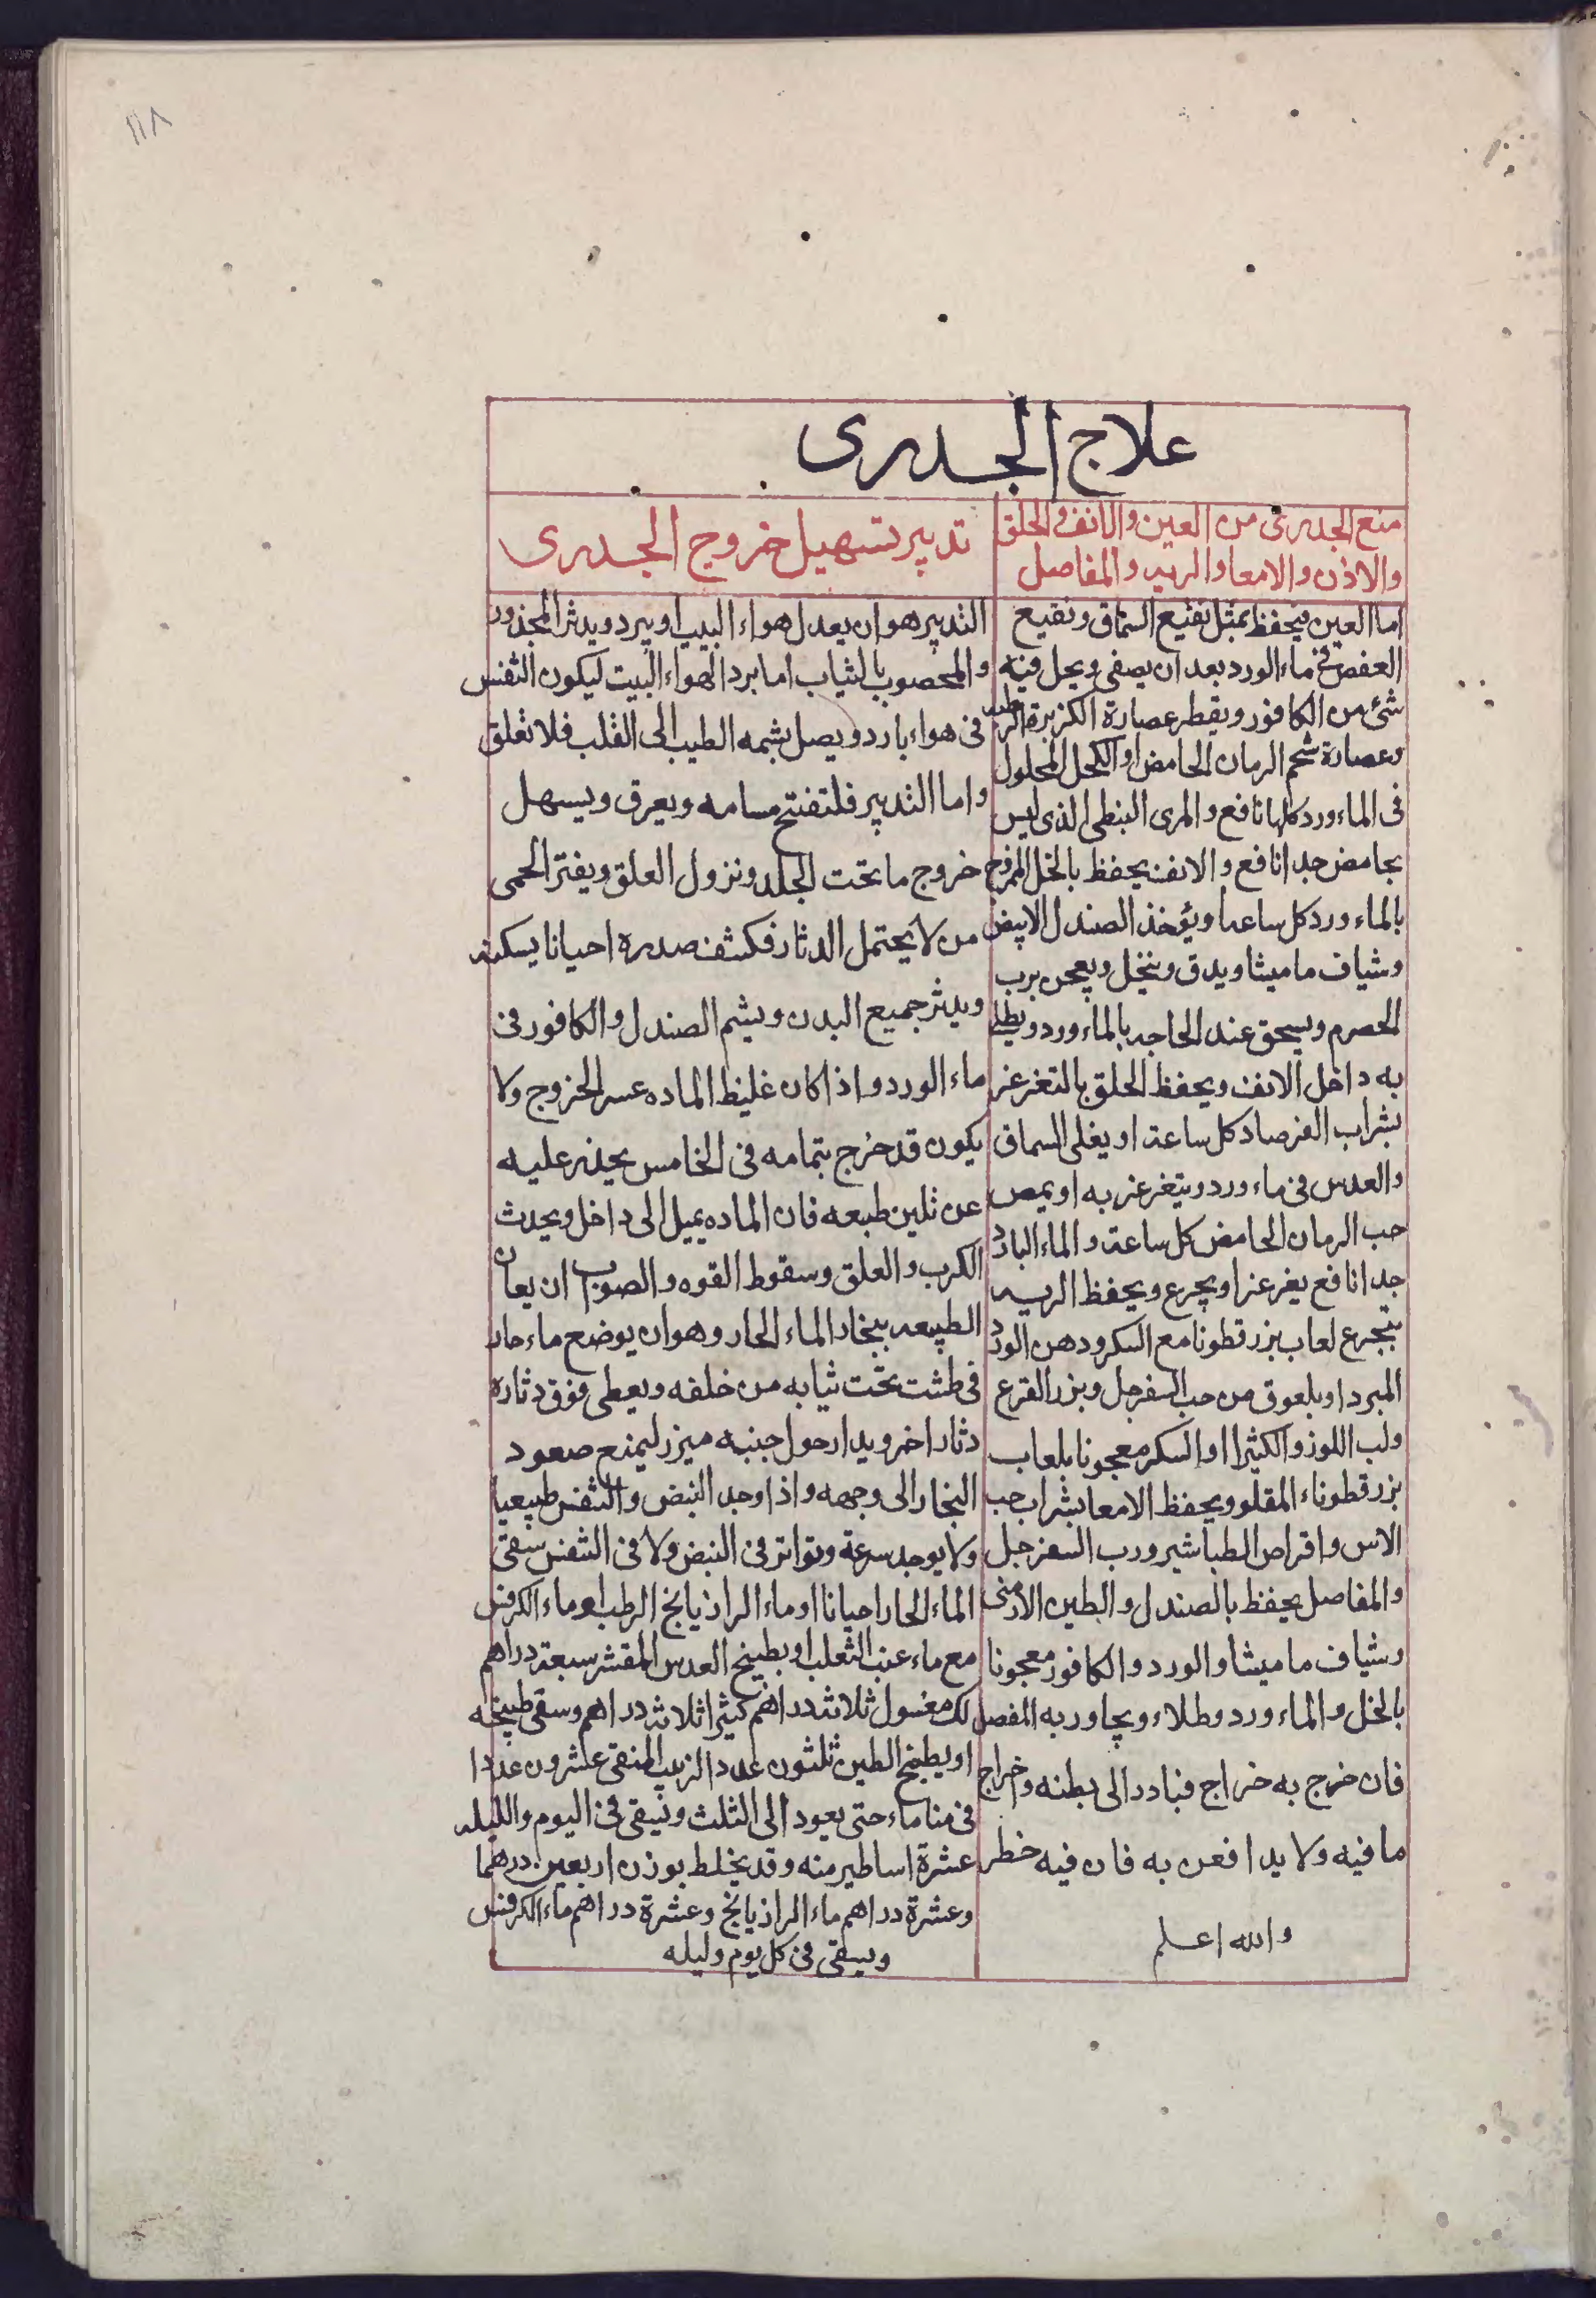 ١١٨
علاج الجدرى
منع الجدرى من العين والانف والحلق
والاذن والامعا والريه والمفاصل
اما العين فيحفظ بمثل نقيع السماق ونقيع
العفص فى ماء الورد بعد ان يصفى ويحل فيه
شئ من الكافور ويقطر عصارة الكزبرة الرطبه
وعصارة شحم الرمان الحامض او الكحل المحلول
فى الماء ورد كلها نافع والمرى النبطى الذى ليس
بحامض جدا نافع والانف يحفظ بالخل الممزوج
بالماء ورد كل ساعه ويؤخذ الصندل الابيض
وشياف ماميثا ويدق وينخل ويعجن برب
الحصرم ويسحق عند الحاجه بالماء ورد ويطلى
به داخل الانف ويحفظ الحلق بالتغرغر
بشراب الفرصاد كل ساعة او يغلى السماق
والعدس فى ماء ورد ويتغرغر به او يمص
حب الرمان الحامض كل ساعة والماء البارد
جدا نافع يغرغر او يجرع ويحفظ الريه
بتجرع لعاب بزر قطونا مع السكر ودهن الورد
المبرد او بلعوق من حب السفرجل وبزر القرع
ولب اللوز والكثيرا او السكر معجونا بلعاب
بزر قطوناء المقلو ويحفظ الامعا بشراب حب
الاس واقراص الطباشير ورب السفرجل
والمفاصل يحفظ بالصندل والطين الارمنى
وشياف ماميثا والورد والكافور معجونا
بالخل والماء ورد وطلاء ويجاور به المفصل
فان خرج به خراج فبادر الى بطنه واخراج
ما فيه ولا يدافعن به فان فيه خطر
والله اعلم
تدبير تسهيل خروج الجدرى
التدبير هو ان يعدل هواء البيت او يبرد ويدثر المجدور
والمحصوب بالثياب اما برد الهواء البيت ليكون التنفس
فى هواء بارد ويصل بشمه الطيب الى القلب فلا تعلق
واما التدبير فلتفتح مسامه ويعرق ويسهل
خروج ما تحت الجلد ونزول العلق ويفتر الحمى
من لا يحتمل الدثار فكشف صدره احيانا يسكنه
ويدثر جميع البدن ويشم الصندل والكافور فى
ماء الورد واذا كان غليظ الماده عسر الخروج ولا
يكون قد خرج بتمامه فى الخامس يحذر عليه
عن تلين طبعه فان الماده يميل الى داخل ويحدث
الكرب والعلق وسقوط القوه والصواب ان يعان
الطبيعه ببخار الماء الحار وهو ان يوضع ماء حار
فى طشت تحت ثيابه من خلفه ويعطى فوق دثاره
دثار اخر ويدار حول جنبه ميزر ليمنع صعود
البخار الى وجهه واذا وجد النبض والتنفس طبيعيا
ولا يوجد سرعة وتواتر فى النبض ولا فى التنفس سقى
الماء الحار احيانا او ماء الراذيانج الرطب او ماء الكرفس
مع ماء عنب الثعلب او بطبيخ العدس المقشر سبعة دراهم
لك مغسول ثلاثه دراهم كثيرا ثلاثه دراهم وسقى طبيخه
او يطبخ الطين ثلثون عددا الزبيب المنقى عشرون عددا
فى منا ماء حتى يعود الى الثلث ويسقى فى اليوم والليله
عشرة اساطير منه وقد يخلط بوزن اربعين درهما
وعشرة دراهم ماء الراذيانج وعشرة دراهم ماء الكرفس
ويسقى فى كل يوم وليله